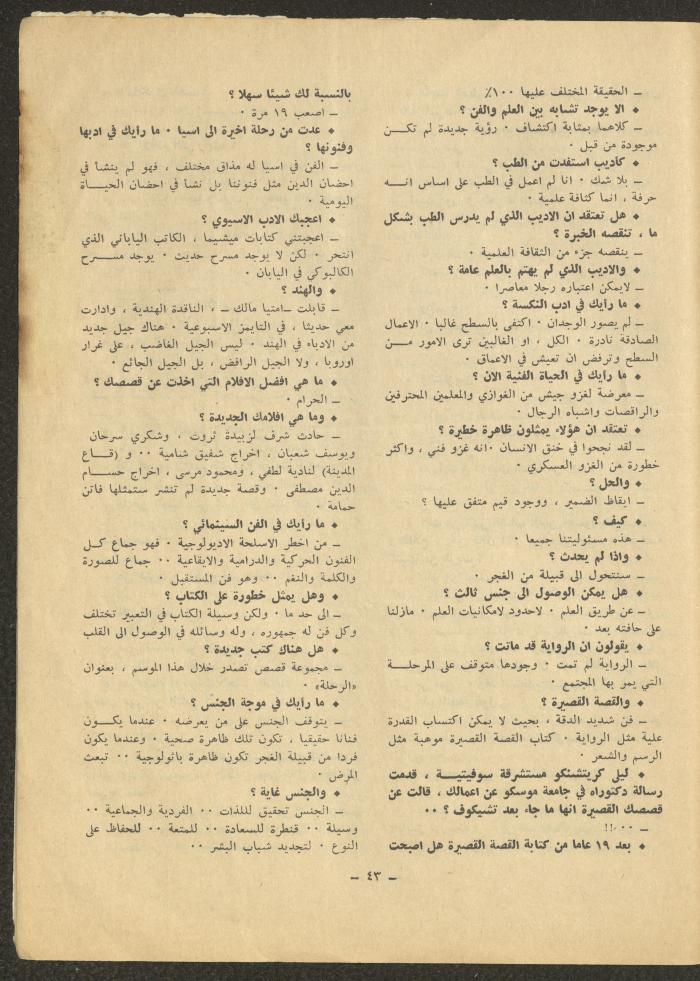 ـ الحقيقة المختلف عليها ١٠٠٪
♦ الا يوجد تشابه بين العلم والفن ؟
ـ كلاهما بمثابة اكتشاف ٠ رؤية جديدة لم تكــن
موجودة من قبل ٠
♦ كأديب استفدت من الطب ؟
ـ بلا شك ٠ انا لم اعمل في الطب على اساس انـــه
حرفة ، انما كثافة علمية ٠
♦ هل تعتقد ان الاديب الذي لم يدرس الطب بشكل
ما ، تنقصه الخبرة ؟
ـ ينقصه جزء من الثقافة العلمية ٠
♦ والاديب الذي لم يهتم بالعلم عامة ؟
ـ لايمكن اعتباره رجلا معاصرا ٠
♦ ما رأيك في ادب النكسة ؟
ـ لم يصور الوجدان ٠ اكتفى بالسطح غالبا ٠ الاعمال
الصادقة نادرة ٠ الكل ، او الغالبين ترى الامور مــن
السطح وترفض ان تعيش في الاعماق ٠
♦ ما رأيك في الحياة الفنية الان ؟
ـ معرضة لغزو جيش من الغوازي والمعلمين المحترفين
والراقصات واشباه الرجال ٠
♦ تعتقد ان هؤلاء يمثلون ظاهرة خطيرة ؟
ـ لقد نجحوا في خنق الانسان ٠انه غزو فني ، واكثر
خطورة من الغزو العسكري ٠
♦ والحل ؟
ـ ايقاظ الضمير ، ووجود قيم متفق عليها ؟
♦ كيف ؟
ـ هذه مسئوليتنا جميعا ٠
♦ واذا لم يحدث ؟
ـ سنتحول الى قبيلة من الفجر ٠
♦ هل يمكن الوصول الى جنس ثالث ؟
ـ عن طريق العلم ٠ لاحدود لامكانيات العلم ٠ مازلنا
على حافته بعد ٠
♦ يقولون ان الرواية قد ماتت ؟
ـ الرواية لم تمت ٠ وجودها متوقف على المرحلــة
التي يمر بها المجتمع ٠
♦ والقصة القصيرة ؟
ـ فن شديد الدقة ، بحيث لا يمكن اكتساب القدرة
علية مثل الرواية ٠ كتاب القصة القصيرة موهبة مثل
الرسم والشعر ٠
♦ ليلى كريتشنكو مستشرقة سوفيتيــة ، قدمت
رسالة دكتوراه في جامعة موسكو عن اعمالك ، قالت عن
قصصك القصيرة انها ما جاء بعد تشيكوف ؟ ٠٠
ـ ٠٠٠!!
♦ بعد ١٩ عاما من كتابة القصة القصيرة هل اصبحت
بالنسبة لك شيئا سهلا ؟
ـ اصعب ١٩ مرة ٠
♦ عدت من رحلة اخيرة الى اسيا ٠ ما رأيك في ادبها
وفنونها ؟
ـ الفن في اسيا له مذاق مختلف ، فهو لم ينشأ في
احضان الدين مثل فنوننا بل نشأ في احضان الحيــاة
اليومية ٠
♦ اعجبك الادب الاسيوي ؟
ـ اعجبتني كتابات ميشيما ، الكاتب الياباني الذي
انتحر ٠ لكن لا يوجد مسرح حديث ٠ يوجد مســرح
الكالبوكي في اليابان ٠
♦ والهند ؟
ـ قابلت ـامتيا مالك ـ ، الناقدة الهندية ، وادارت
معي حديثا ، في التايمز الاسبوعية ٠ هناك جيل جديد
من الادباء في الهند ٠ ليس الجيل الغاضب ، على غرار
اوروبا ، ولا الجيل الرافض ، بل الجيل الجائع ٠
♦ ما هي افضل الافلام التي اخذت عن قصصك ؟
ـ الحرام ٠
♦ وما هي افلامك الجديدة ؟
ـ حادث شرف لزبيدة ثروت ، وشكري سرحان
ويوسف شعبان ، اخراج شفيق شامية ٠٠ و (قــاع
المدينة) لنادية لطفي ، ومحمود مرسى ، اخراج حســام
الدين مصطفى ٠ وقصة جديدة لم تنشر ستمثلها فاتن
حمامة ٠
♦ ما رأيك في الفن السينمائي ؟
ـ من اخطر الاسلحة الاديولوجية ٠ فهو جماع كــل
الفنون الحركية والدرامية والايقاعية ٠٠ جماع للصورة
والكلمة والنغم ٠٠ وهو فن المستقبل ٠
♦ وهل يمثل خطورة على الكتاب ؟
ـ الى حد ما ٠ ولكن وسيلة الكتاب في التعبير تختلف
وكل فن له جمهوره ، وله وسائله في الوصول الى القلب
♦ هل هناك كتب جديدة ؟
ـ مجموعة قصص تصدر خلال هذا الموسم ، بعنوان
«الرحلة» ٠
♦ ما رأيك في موجة الجنس ؟
ـ يتوقف الجنس على من يعرضه ٠ عندما يكــون
فنانا حقيقيا ، تكون تلك ظاهرة صحية ٠ وعندما يكون
فردا من قبيلة الفجر تكون ظاهرة باثولوجية ٠٠ تبعث
المرض ٠
♦ والجنس غاية ؟
ـ الجنس تحقيق لللذات ٠٠ الفردية والجماعية ٠٠
وسيلة ٠٠ قنطرة للسعادة ٠٠ للمتعة ٠٠ للحفاظ على
النوع ٠ لتجديد شباب البشر ٠٠
ـ ٤٣ ـ